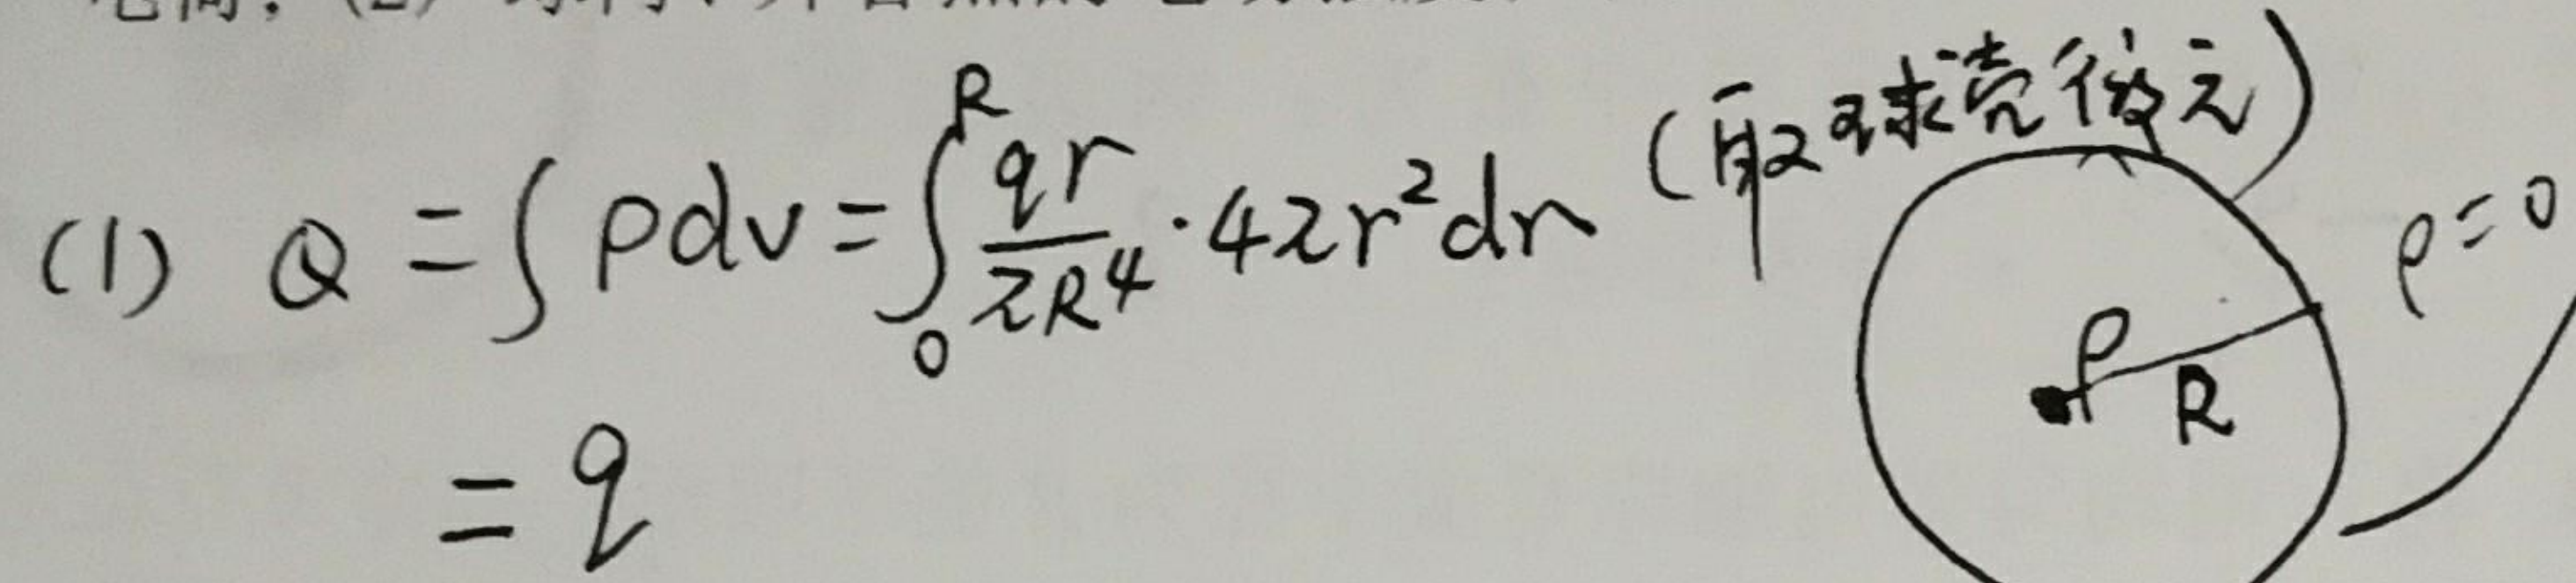 (1) Q = ∫ρdv = ∫₀ᴿ qr/πR⁴ · 4πr²dr (取球壳微元)
= q
ρ=0
ρ
R